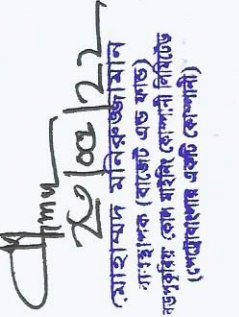 ২০/০৫/২২
মোহাম্মদ মনিরুজ্জামান
ব্যবস্থাপক (বাজেট এন্ড ফান্ড)
বড়পুকুরিয়া কোল মাইনিং কোম্পানী লিমিটেড
(পেট্রোবাংলার একটি কোম্পানী)